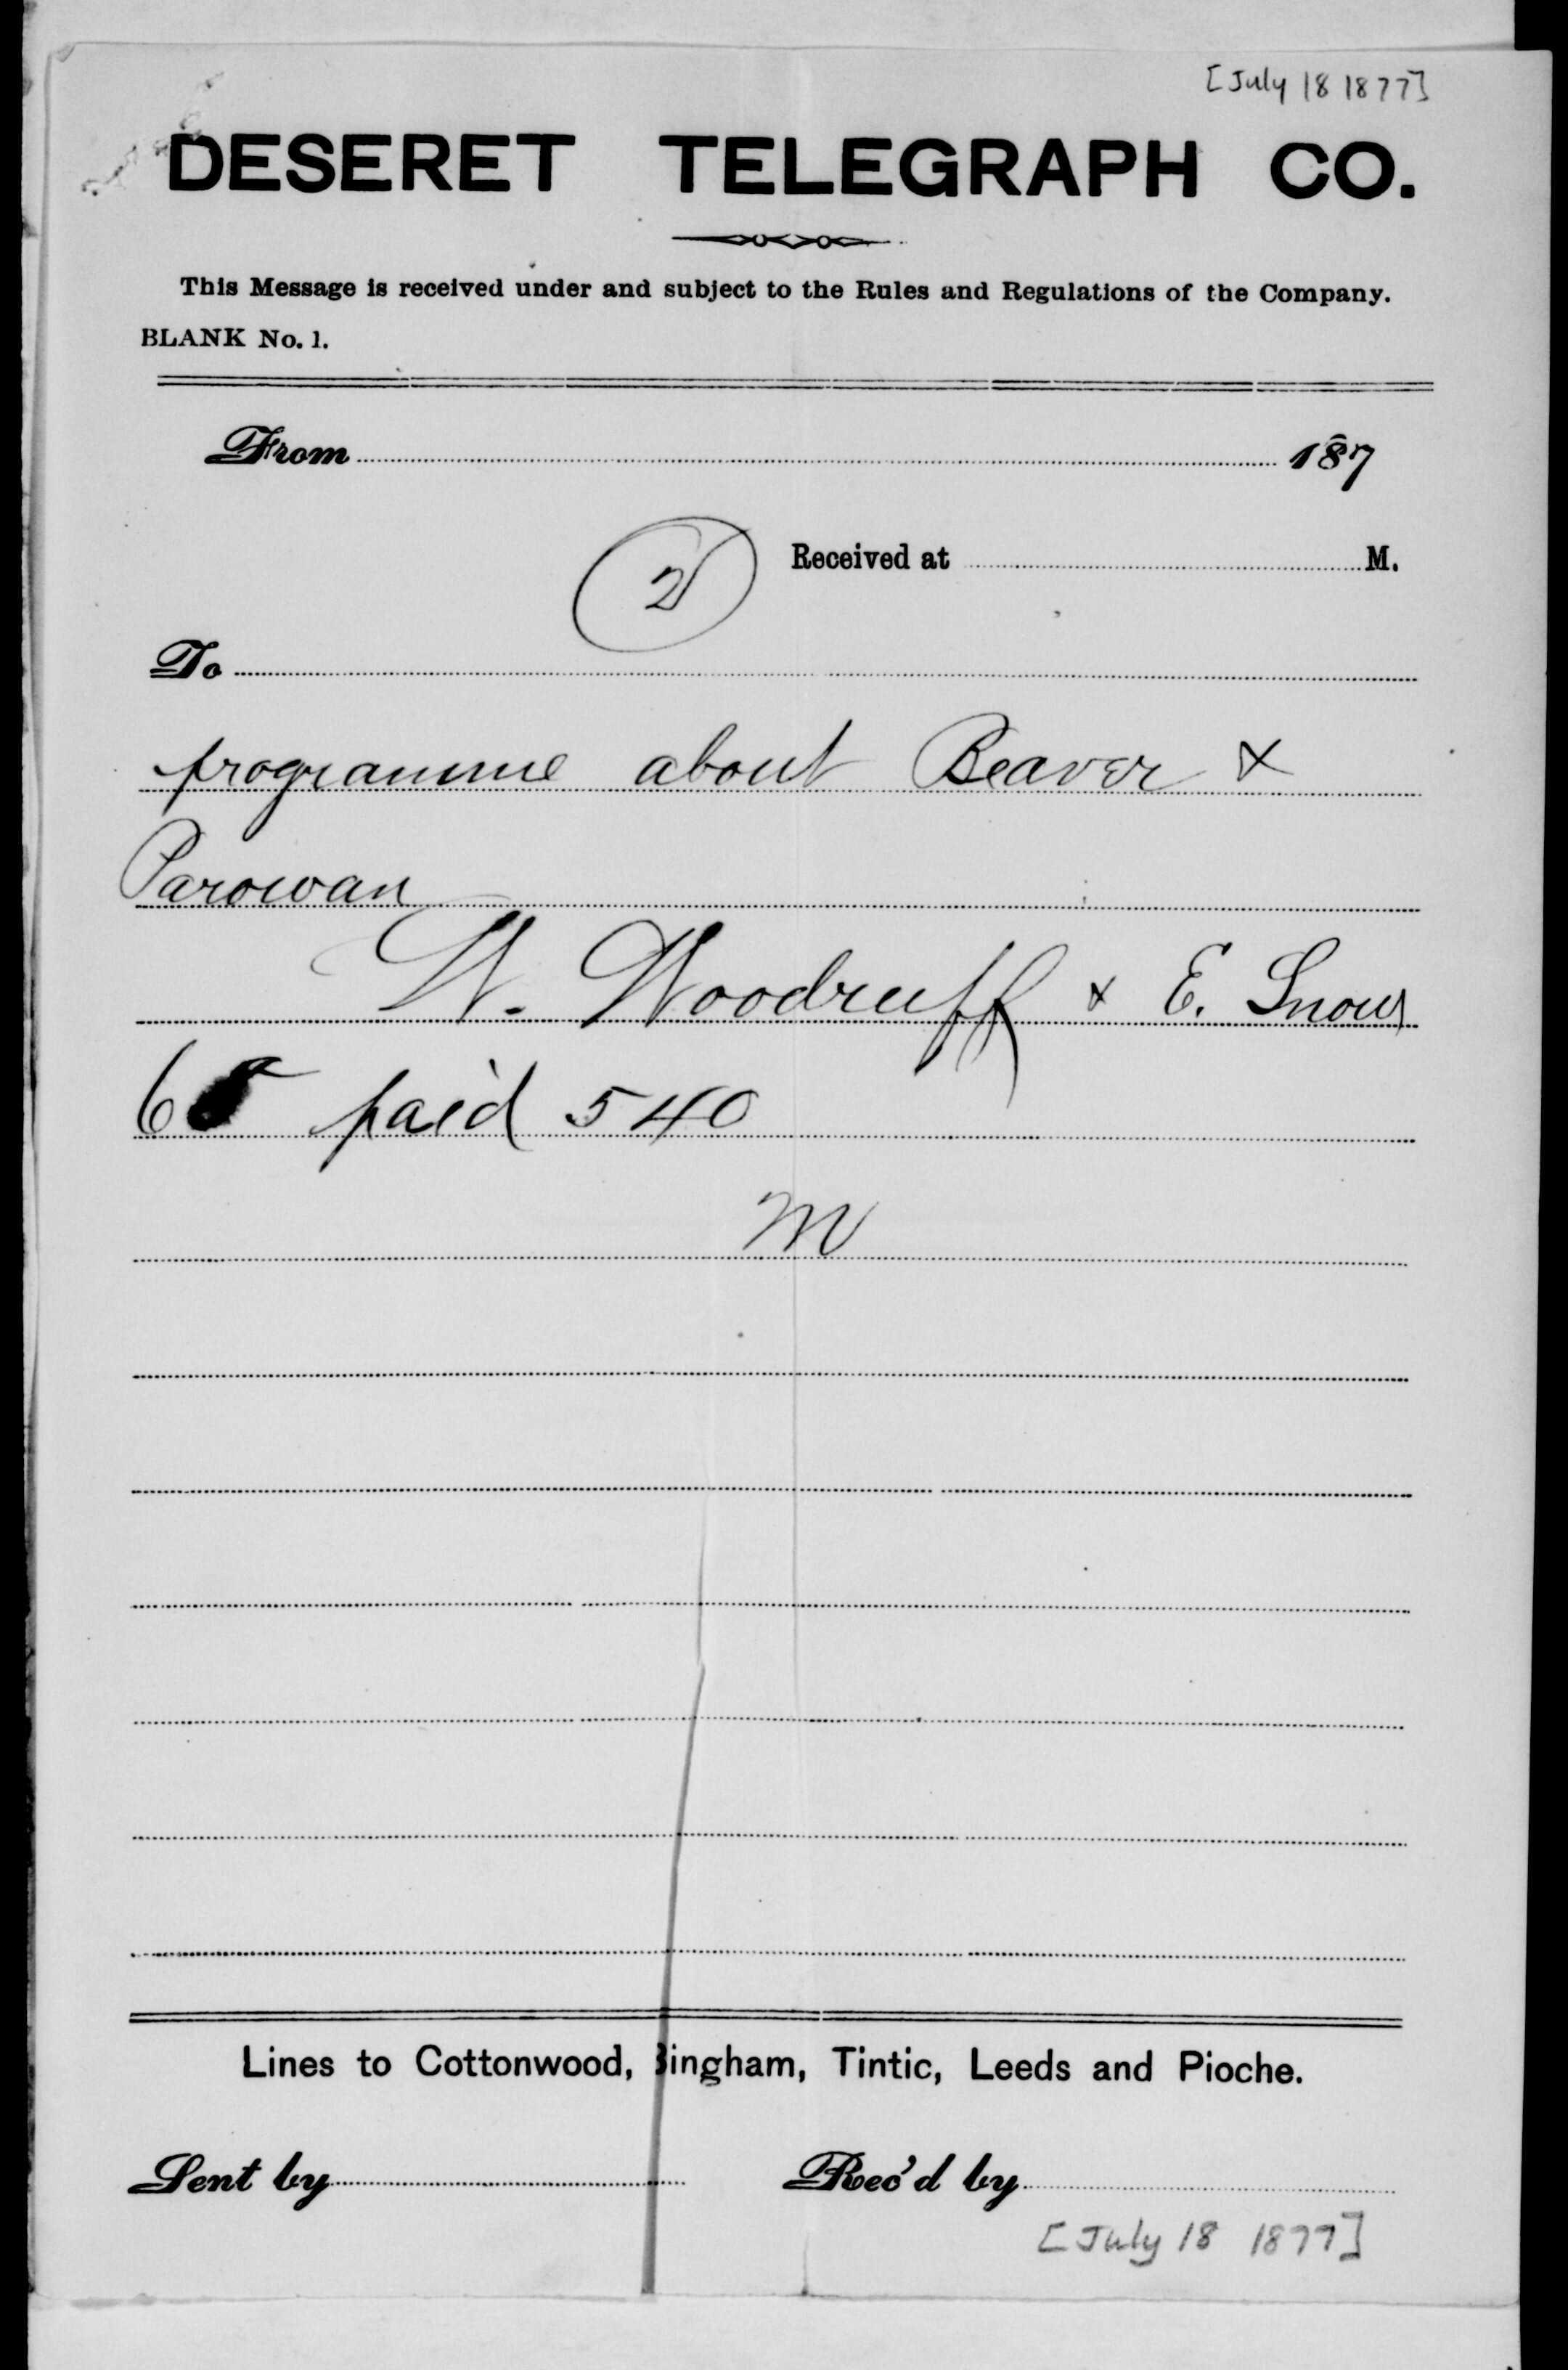 [July 18 1877]
DESERET TELEGRAPH CO.
This Message is received under and subject to the Rules and Regulations of the Company.
BLANK No. 1.
From 187
2
Received at M.
To
programme about Beaver &
Parowan
W. Woodruff & E. Snow
paid 540
M
Lines to Cottonwood, Bingham, Tintic, Leeds and Pioche.
Sent by Rec'd by
[July 18 1877]